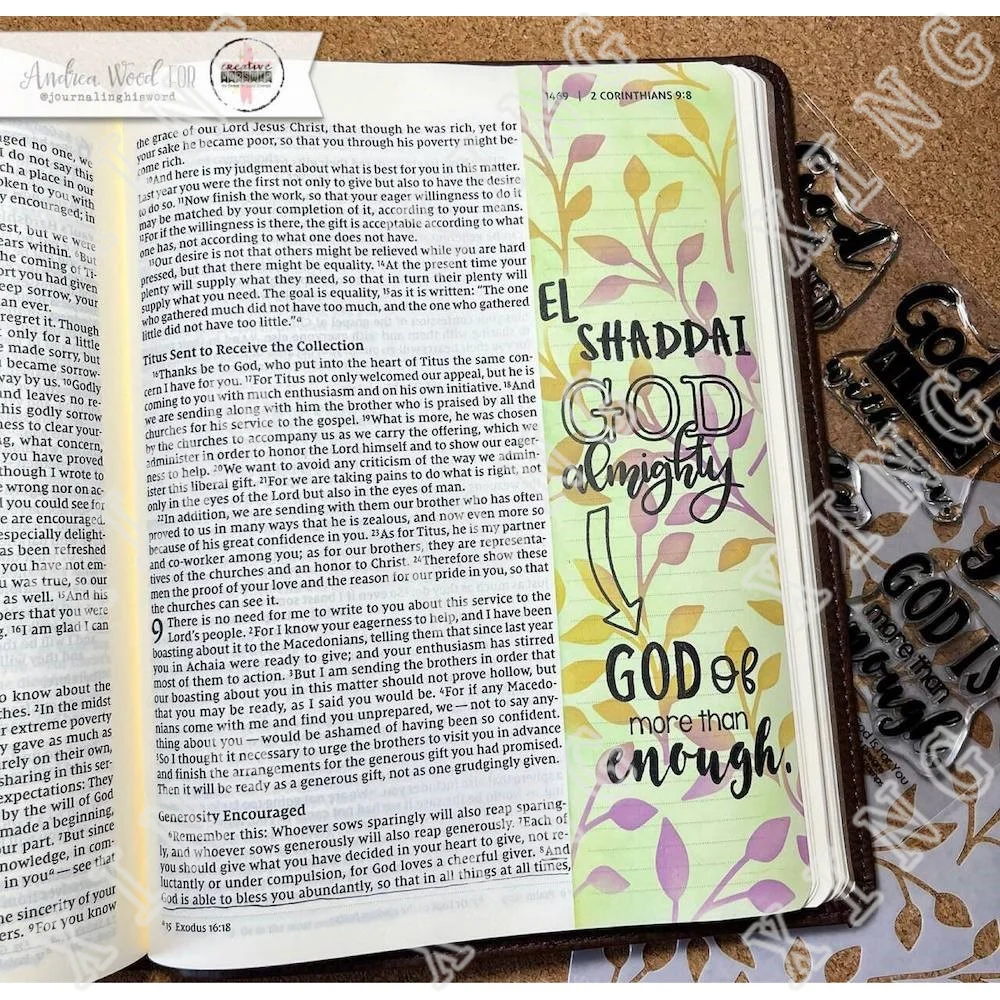 Andrea Wood FOR
@journalinghisword
creative
1469 | 2 CORINTHIANS 9:8
aged no one, we
I do not say this
ch a place in our
oken to you with
y encouraged; in
est, but we were
ears within. 6But
the coming of Ti-
ort you had given
eep sorrow, your
an ever.
regret it. Though
t only for a little
e made sorry, but
became sorrow-
way by us. 10Godly
and leaves no re-
this godly sorrow
ness to clear your-
ng, what concern,
you have proved
though I wrote to
e wrong nor on ac-
d you could see for
e are encouraged.
especially delight-
as been refreshed
u was true, so our
as well. 15And his
bers that you were
g. 16I am glad I can
o know about the
ches. 2In the midst
r extreme poverty
y gave as much as
urely on their own,
sharing in this ser-
expectations: They
by the will of God
made a beginning,
our part. 7But since
nowledge, in com-
in youa — see that
he sincerity of your
ers. 9For you know
the grace of our Lord Jesus Christ, that though he was rich, yet for
your sake he became poor, so that you through his poverty might be-
come rich.
10And here is my judgment about what is best for you in this matter.
Last year you were the first not only to give but also to have the desire
to do so. 11Now finish the work, so that your eager willingness to do it
may be matched by your completion of it, according to your means.
12For if the willingness is there, the gift is acceptable according to what
one has, not according to what one does not have.
13Our desire is not that others might be relieved while you are hard
pressed, but that there might be equality. 14At the present time your
plenty will supply what they need, so that in turn their plenty will
supply what you need. The goal is equality, 15as it is written: “The one
who gathered much did not have too much, and the one who gathered
little did not have too little.”a
Titus Sent to Receive the Collection
16Thanks be to God, who put into the heart of Titus the same con-
cern I have for you. 17For Titus not only welcomed our appeal, but he is
coming to you with much enthusiasm and on his own initiative. 18And
we are sending along with him the brother who is praised by all the
churches for his service to the gospel. 19What is more, he was chosen
by the churches to accompany us as we carry the offering, which we
administer in order to honor the Lord himself and to show our eager-
ness to help. 20We want to avoid any criticism of the way we admin-
ister this liberal gift. 21For we are taking pains to do what is right, not
only in the eyes of the Lord but also in the eyes of man.
22In addition, we are sending with them our brother who has often
proved to us in many ways that he is zealous, and now even more so
because of his great confidence in you. 23As for Titus, he is my partner
and co-worker among you; as for our brothers, they are representa-
tives of the churches and an honor to Christ. 24Therefore show these
men the proof of your love and the reason for our pride in you, so that
the churches can see it.
9 There is no need for me to write to you about this service to the
Lord’s people. 2For I know your eagerness to help, and I have been
boasting about it to the Macedonians, telling them that since last year
you in Achaia were ready to give; and your enthusiasm has stirred
most of them to action. 3But I am sending the brothers in order that
our boasting about you in this matter should not prove hollow, but
that you may be ready, as I said you would be. 4For if any Macedo-
nians come with me and find you unprepared, we — not to say any-
thing about you — would be ashamed of having been so confident.
5So I thought it necessary to urge the brothers to visit you in advance
and finish the arrangements for the generous gift you had promised.
Then it will be ready as a generous gift, not as one grudgingly given.
Generosity Encouraged
6Remember this: Whoever sows sparingly will also reap sparing-
ly, and whoever sows generously will also reap generously. 7Each of
you should give what you have decided in your heart to give, not re-
luctantly or under compulsion, for God loves a cheerful giver. 8And
God is able to bless you abundantly, so that in all things at all times,
a15 Exodus 16:18
EL
SHADDAI
GOD
almighty
GOD of
more than
enough.
God
GOD IS
more than
enough